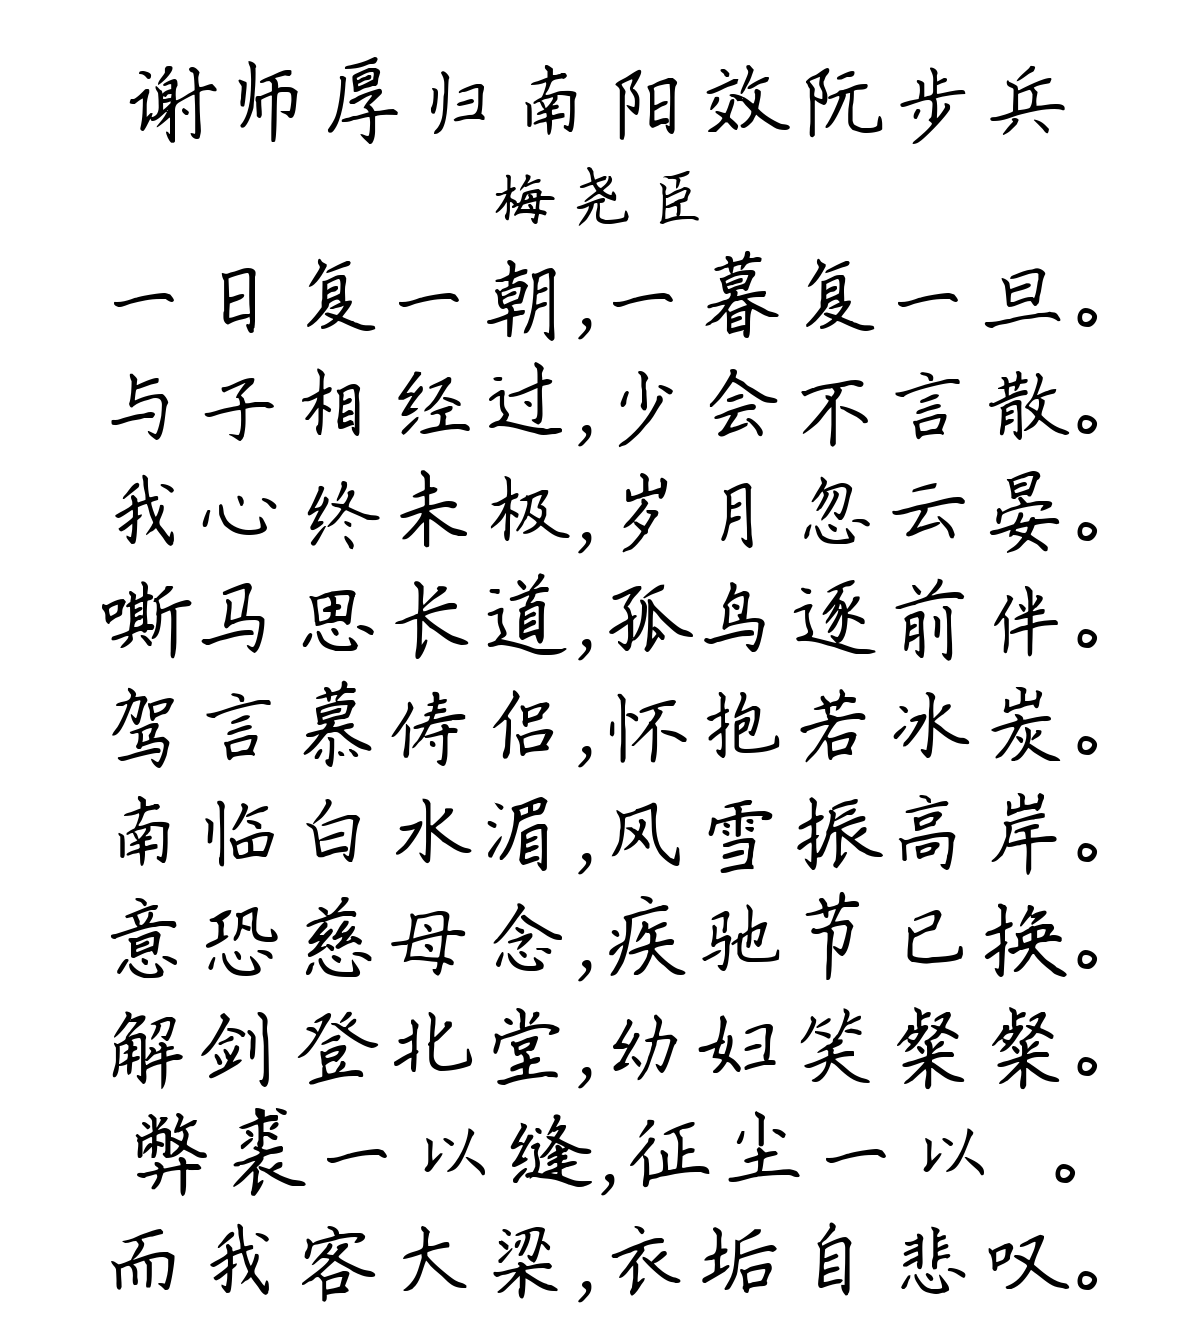 谢师厚归南阳效阮步兵
梅尧臣
一日复一朝,一暮复一旦。
与子相经过,少会不言散。
我心终未极,岁月忽云晏。
嘶马思长道,孤鸟逐前伴。
驾言慕俦侣,怀抱若冰炭。
南临白水湄,风雪振高岸。
意恐慈母念,疾驰节已换。
解剑登北堂,幼妇笑粲粲。
弊裘一以缝,征尘一以 。
而我客大梁,衣垢自悲叹。